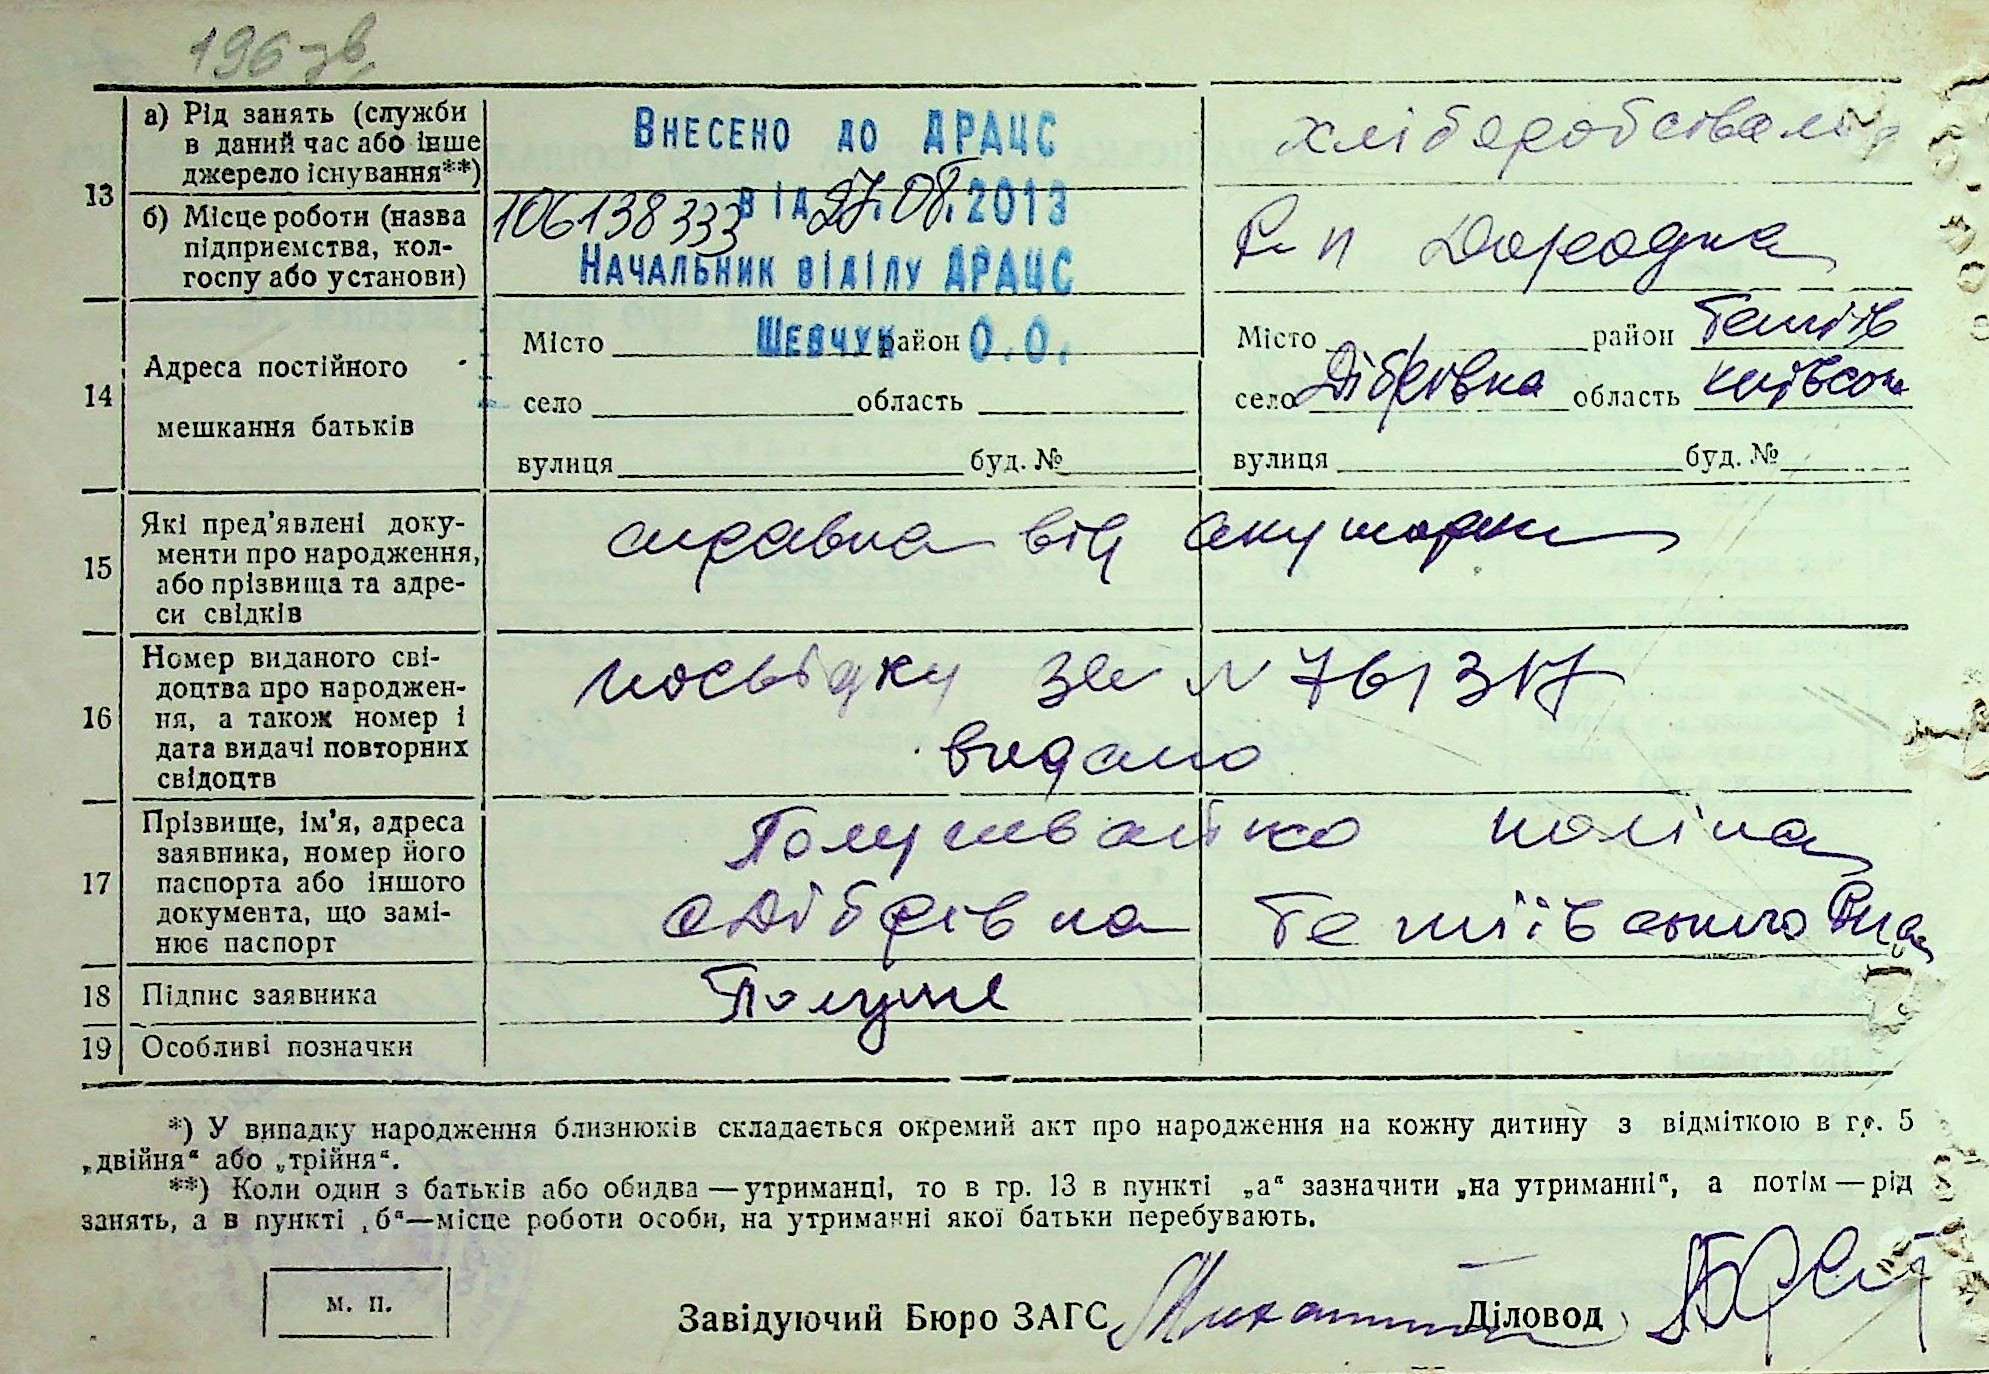 196 зв.
13
а) Рід занять (служби
в даний час або інше
джерело існування**)
Внесено до ДРАЦС
б) Місце роботи (назва
підприємства, кол-
госпу або установи)
106138333 від 27.08.2013
Начальник відділу ДРАЦС
14
Адреса постійного
мешкання батьків
Місто Шевчук район О.О.
село область
вулиця буд. №
Місто район Тетіїв
село Дібрівка область Київсок
вулиця буд. №
15
Які пред'явлені доку-
менти про народження,
або прізвища та адре-
си свідків
справка від акушорки
16
Номер виданого сві-
доцтва про народжен-
ня, а також номер і
дата видачі повторних
свідоцтв
посвідку за № 761317
видано
17
Прізвище, ім'я, адреса
заявника, номер його
паспорта або іншого
документа, що замі-
нює паспорт
Поліна
с Дібрівка Тетіївського Р-на
18
Підпис заявника
19
Особливі позначки
*) У випадку народження близнюків складається окремий акт про народження на кожну дитину з відміткою в гр. 5
„двійня“ або „трійня“.
**) Коли один з батьків або обидва — утриманці, то в гр. 13 в пункті „а“ зазначити „на утриманні“, а потім — рід
занять, а в пункті „б“—місце роботи особи, на утриманні якої батьки перебувають.
м. п.
Завідуючий Бюро ЗАГС Діловод